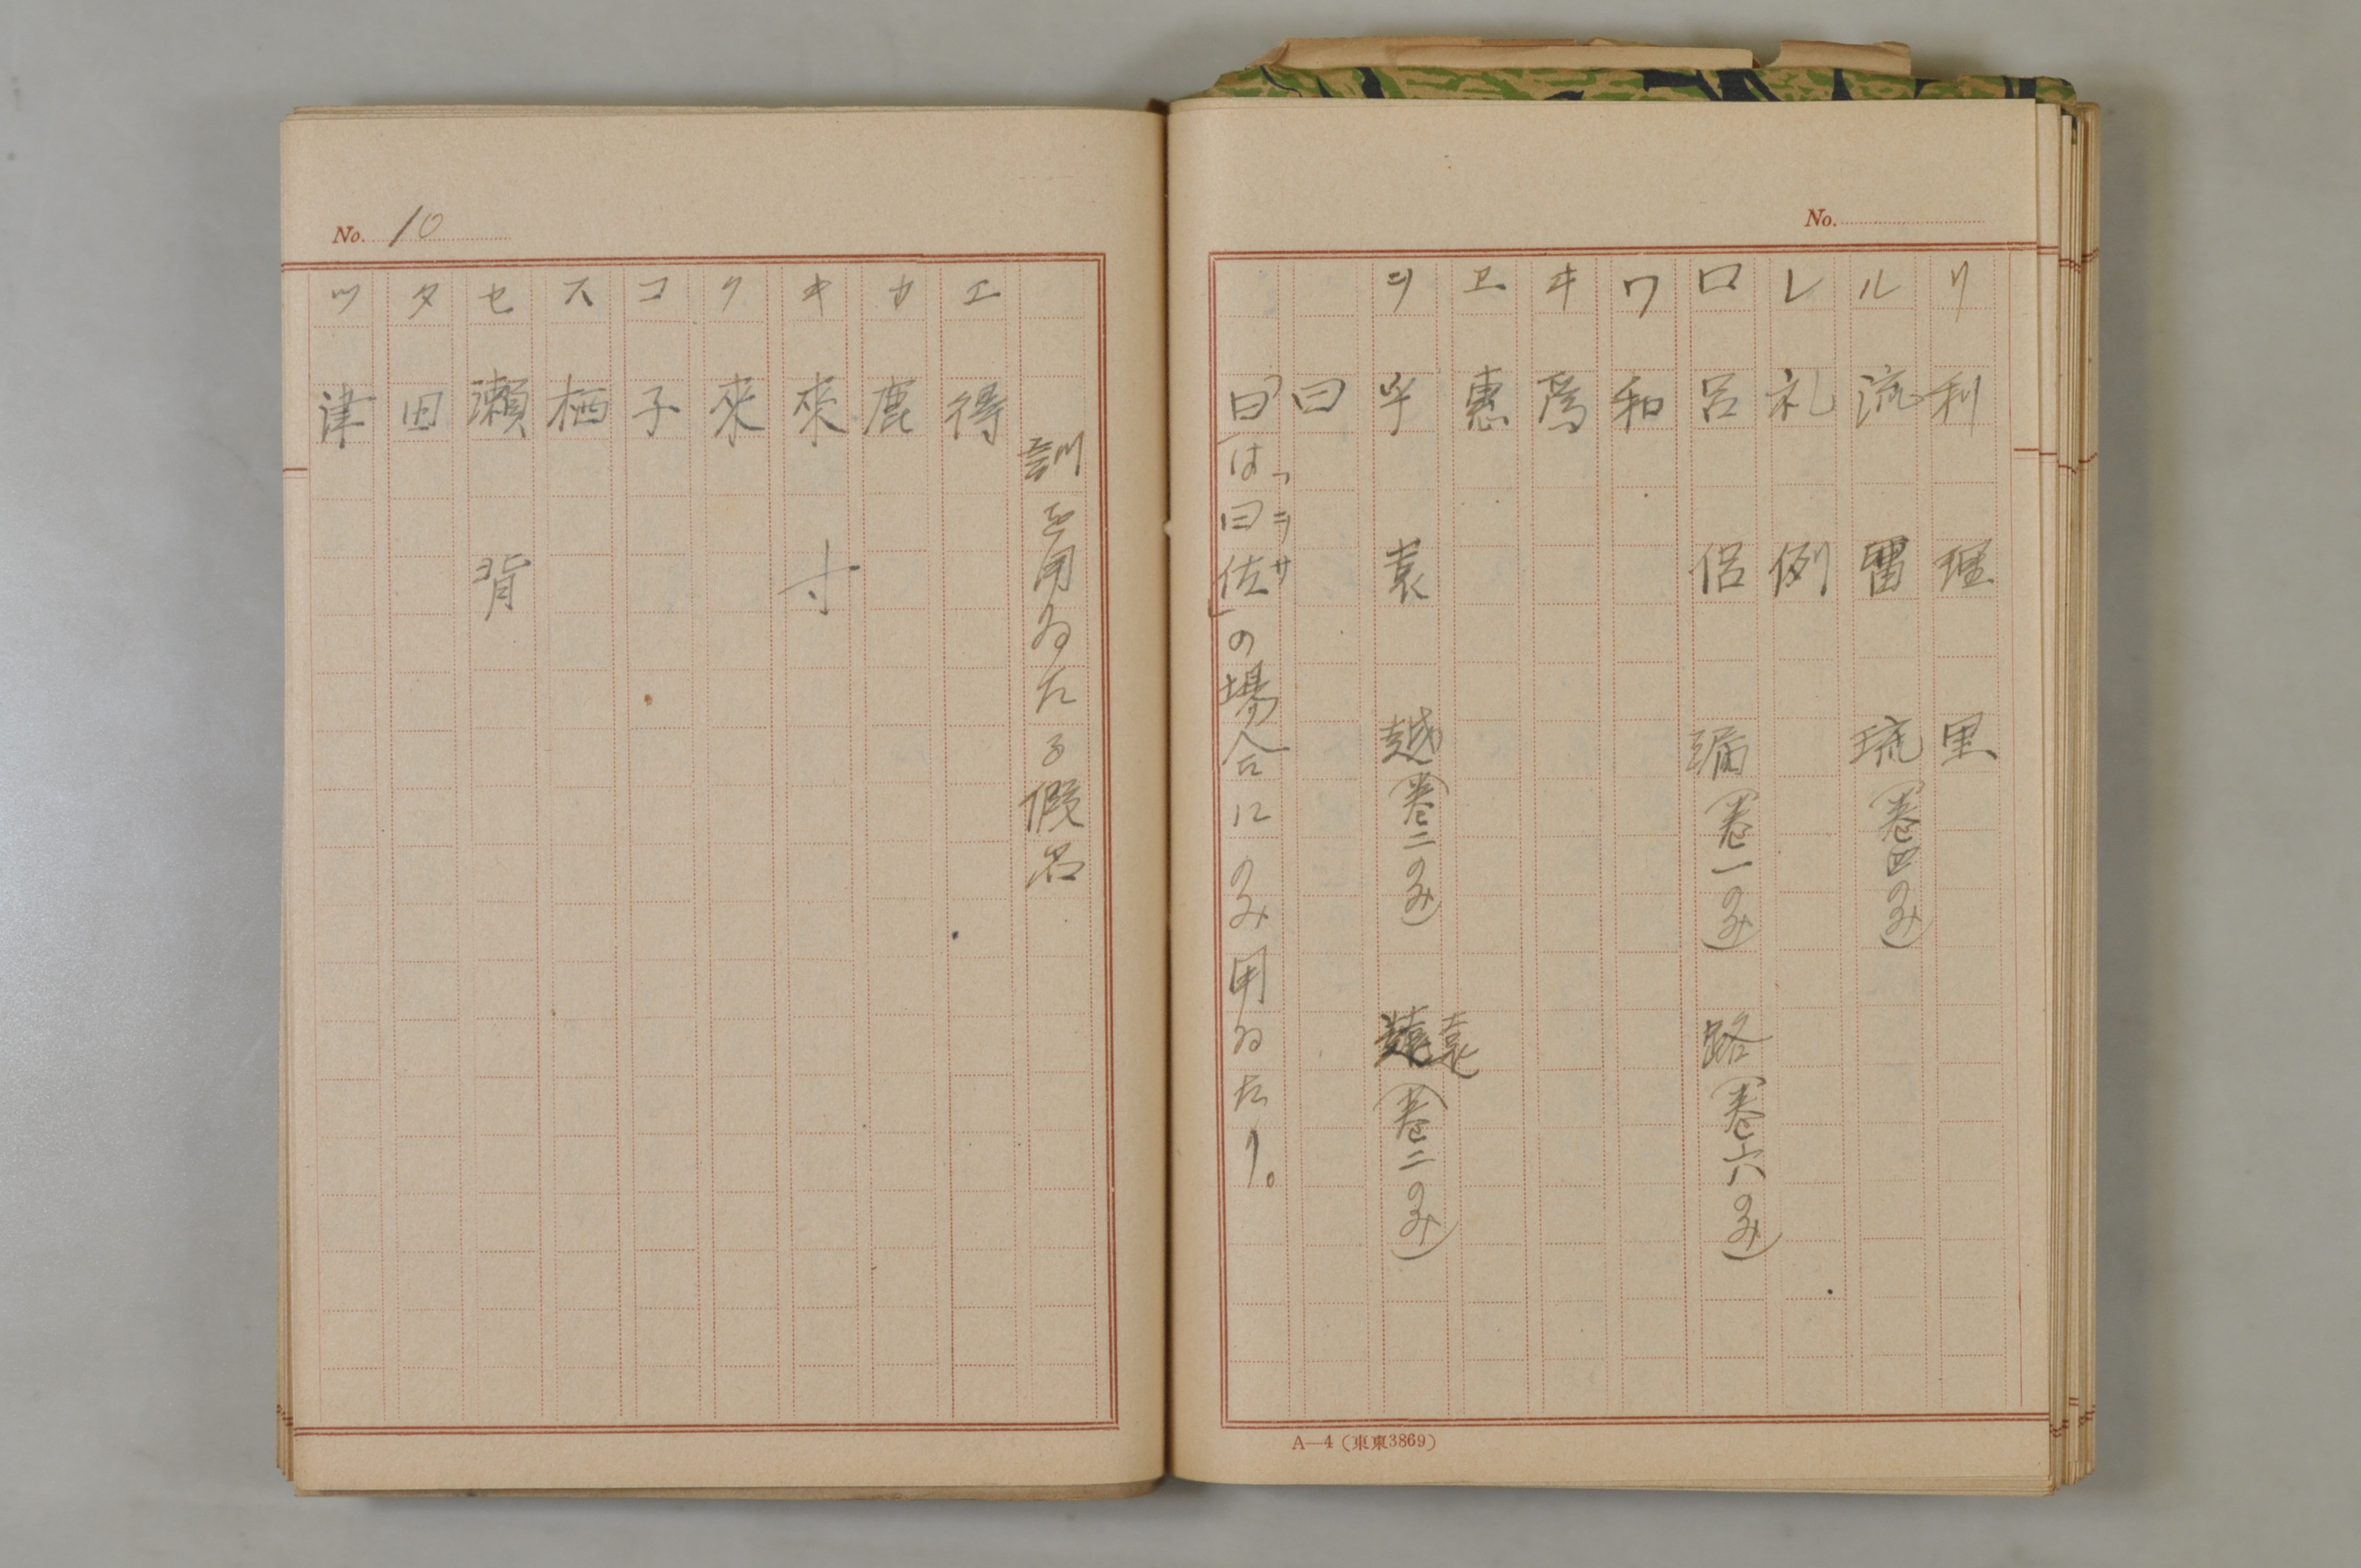 No.
リ 利 理 里
ル 流 留 琉(卷四のみ)
レ 礼 例
ロ 呂 侶 漏(卷一のみ) 路(卷六のみ)
ワ 和
ヰ 爲
ヱ 惠
ヲ 乎 袁 越(卷二のみ) 遠(卷二のみ)
曰
曰は「曰佐」の場合にのみ用ゐたり。
ヲサ
A—4 (東東3869)
No. 10
訓を用ゐたる假名
エ 得
カ 鹿
キ 來 寸
ク 來
コ 子
ス 栖
セ 瀬 背
タ 田
ツ 津